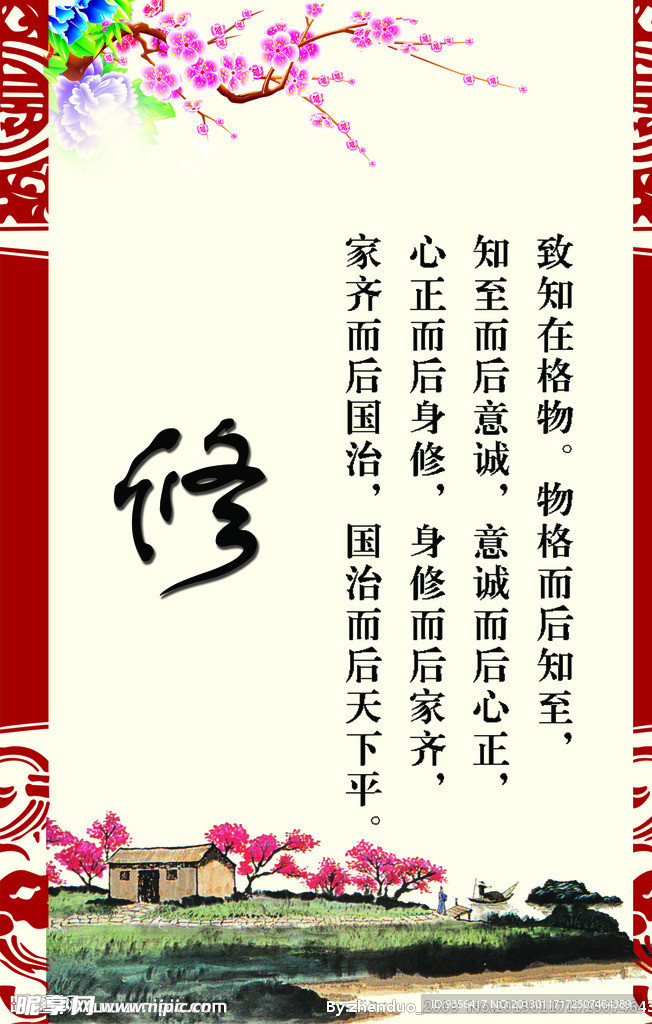 致知在格物。物格而后知至，
知至而后意诚，意诚而后心正，
心正而后身修，身修而后家齐，
家齐而后国治，国治而后天下平。
修
昵享网 www.nipic.com
ID:9356417 NO:20130117172507464389